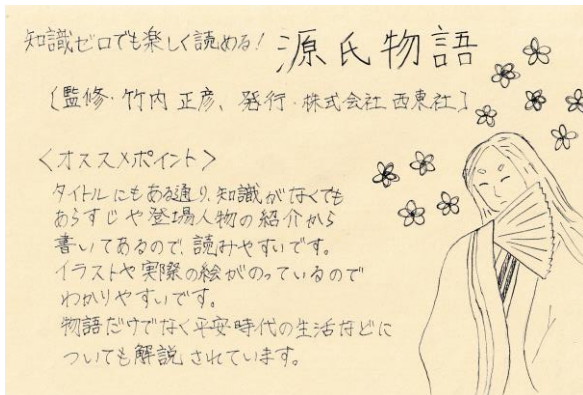 知識ゼロでも楽しく読める! 源氏物語
[監修・竹内 正彦、発行・株式会社 西東社]
<オススメポイント>
タイトルにもある通り、知識がなくても
あらすじや登場人物の紹介から
書いてあるので、読みやすいです。
イラストや実際の絵がのっているので
わかりやすいです。
物語だけでなく平安時代の生活などに
ついても解説されています。